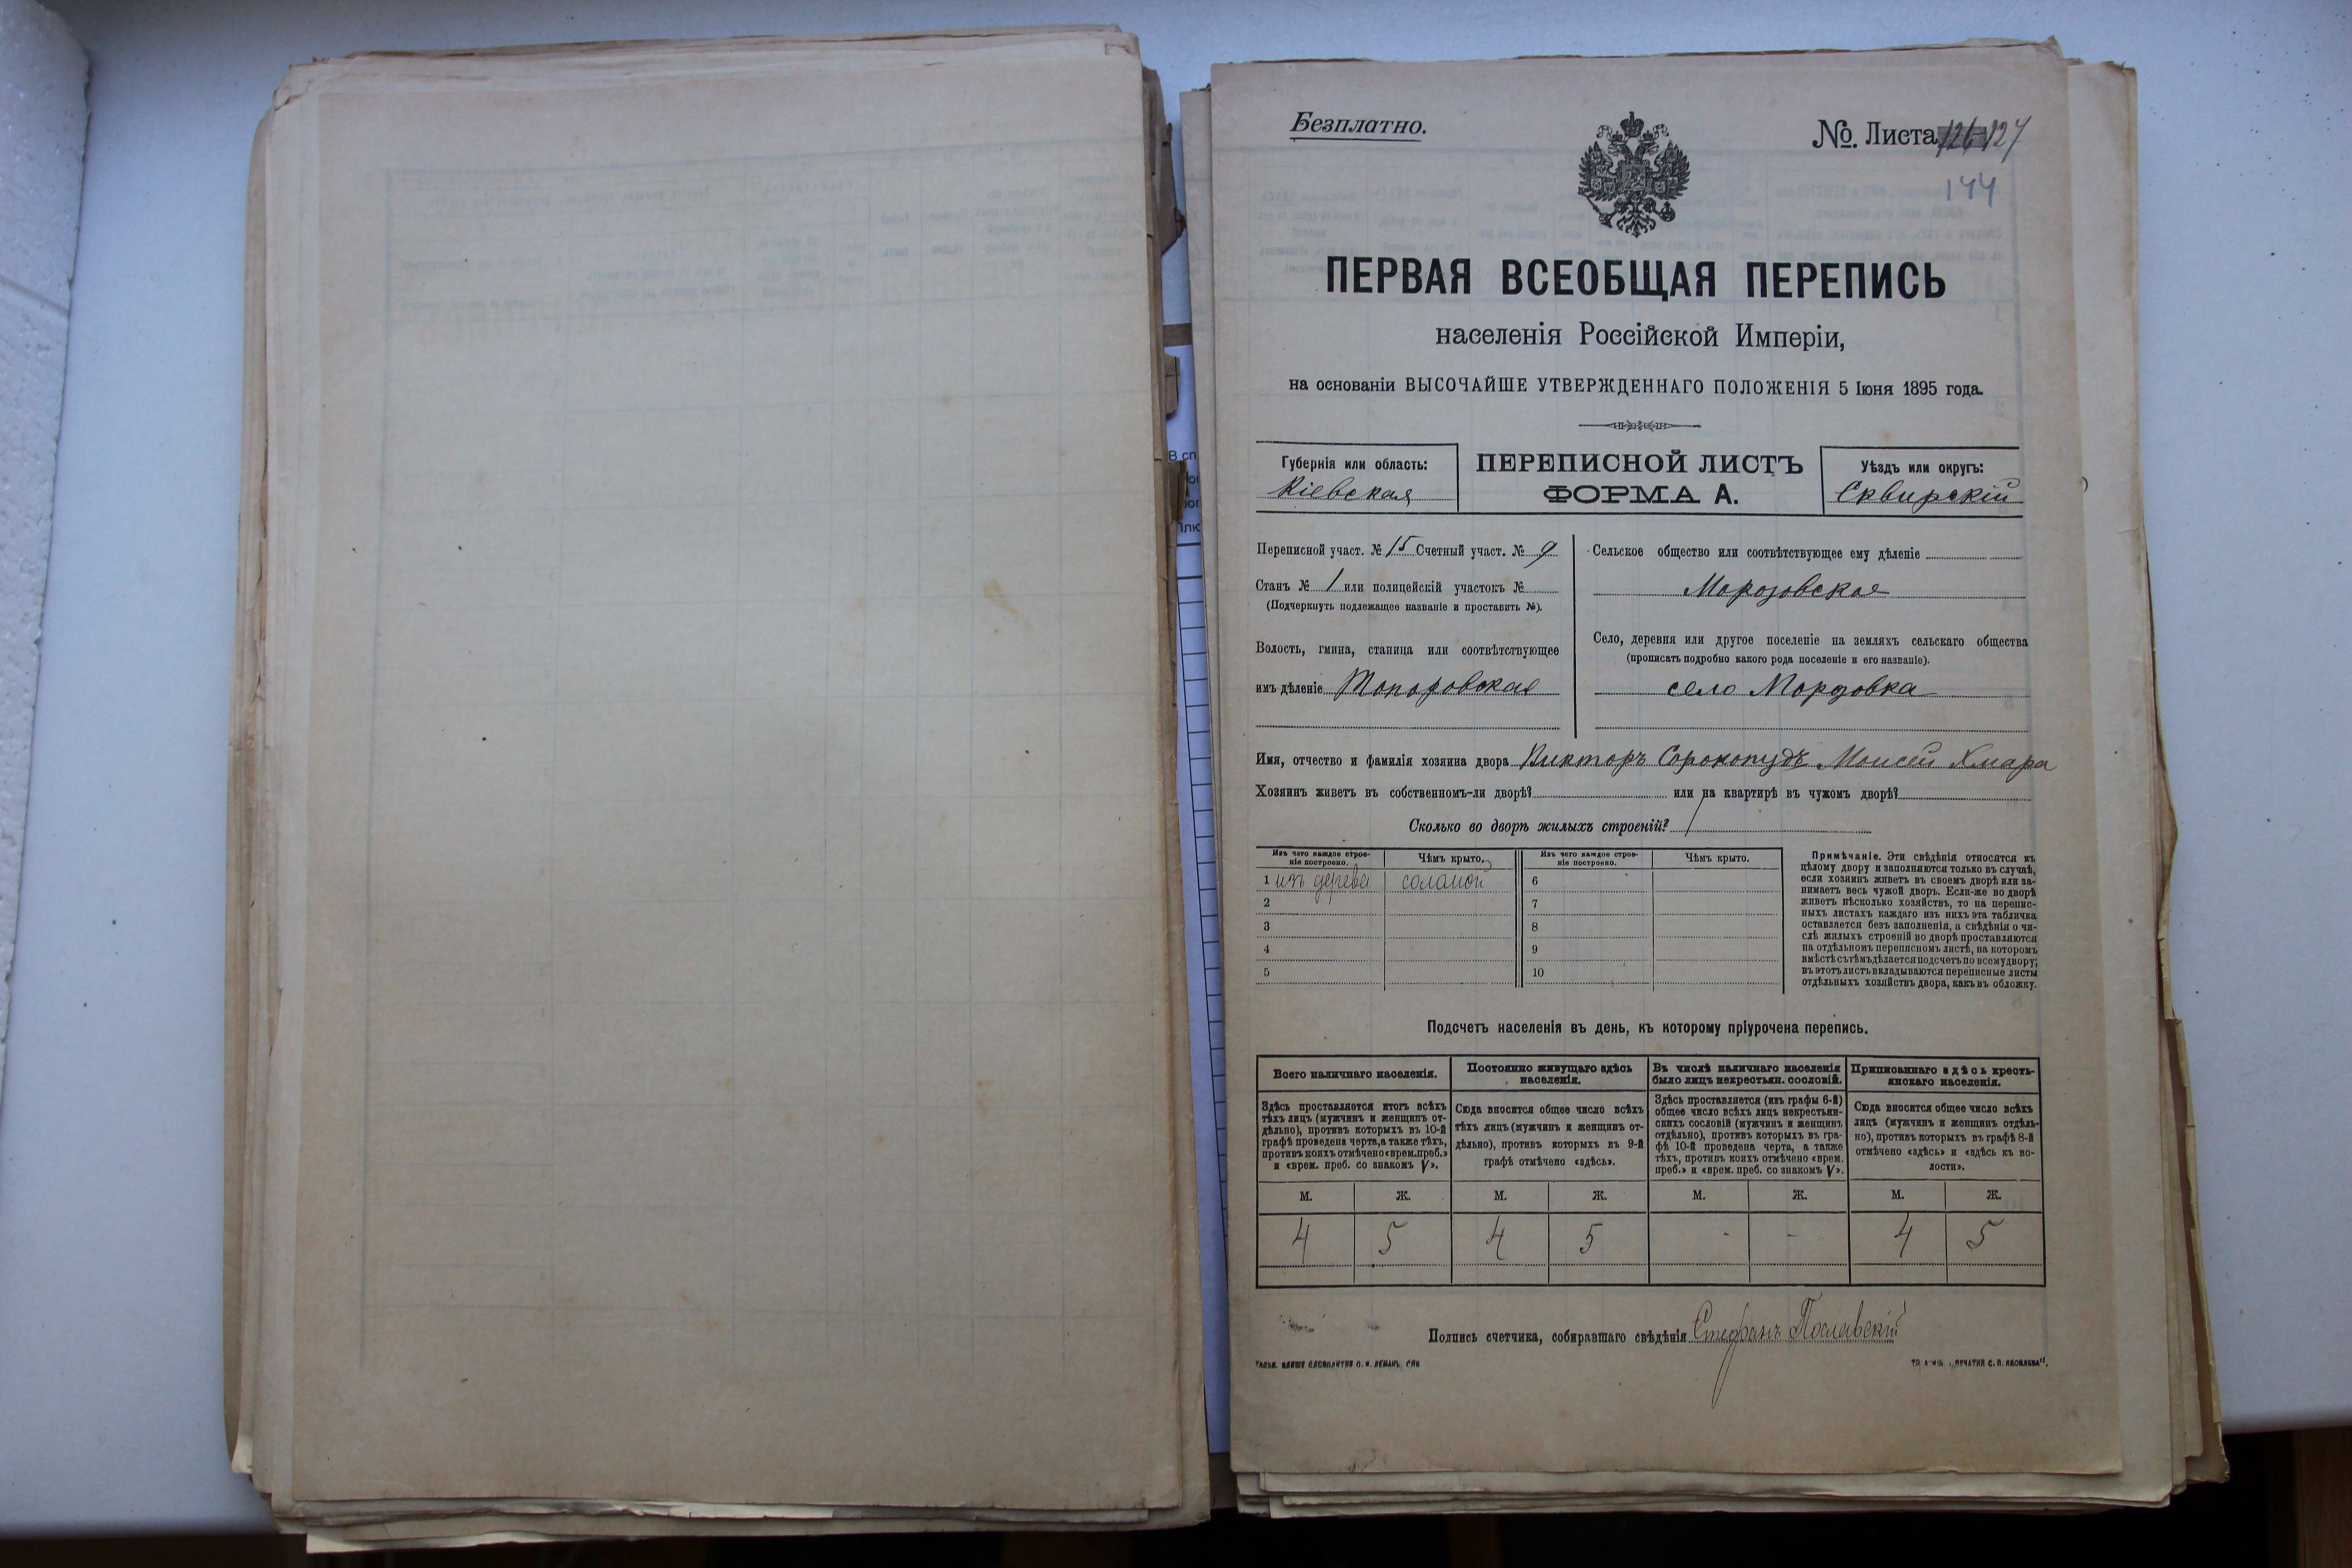 Безплатно.
№. Листа 126 127
144
ПЕРВАЯ ВСЕОБЩАЯ ПЕРЕПИСЬ
населенія Россійской Имперіи,
на основаніи ВЫСОЧАЙШЕ УТВЕРЖДЕННАГО ПОЛОЖЕНІЯ 5 Іюня 1895 года.
Губернія или область:
Кіевская
ПЕРЕПИСНОЙ ЛИСТЪ
ФОРМА А.
Уѣздъ или округъ:
Сквирскій
Переписной участ. № 15 Счетный участ. № 9
Станъ № 1 или полицейскій участокъ №
(Подчеркнуть подлежащее названіе и проставить №).
Волость, гмина, станица или соотвѣтствующее
имъ дѣленіе Топоровская
Сельское общество или соотвѣтствующее ему дѣленіе
Морозовское
Село, деревня или другое поселеніе на земляхъ сельскаго общества
(прописать подробно какого рода поселеніе и его названіе).
село Морозовка
Имя, отчество и фамилія хозяина двора Викторъ Сорокопудъ Моисей Хмара
Хозяинъ живетъ въ собственномъ-ли дворѣ? или на квартирѣ въ чужомъ дворѣ?
Сколько во дворѣ жилыхъ строеній? 1
Изъ чего каждое строе-
ніе построено.
Чѣмъ крыто.
Изъ чего каждое строе-
ніе построено.
Чѣмъ крыто.
1 изъ дерева соломой 6
2 7
3 8
4 9
5 10
Примѣчаніе. Эти свѣдѣнія относятся къ
цѣлому двору и заполняются только въ случаѣ,
если хозяинъ живетъ въ своемъ дворѣ или за-
нимаетъ весь чужой дворъ. Если-же во дворѣ
живетъ нѣсколько хозяйствъ, то на перепис-
ныхъ листахъ каждаго изъ нихъ эта табличка
оставляется безъ заполненія, а свѣдѣнія о чи-
слѣ жилыхъ строеній во дворѣ проставляются
на отдѣльномъ переписномъ листѣ, на которомъ
вмѣстѣ съ тѣмъ дѣлается подсчетъ по всему двору;
въ этотъ листъ вкладываются переписные листы
отдѣльныхъ хозяйствъ двора, какъ въ обложку.
Подсчетъ населенія въ день, къ которому пріурочена перепись.
Всего наличнаго населенія.
Здѣсь проставляется итогъ всѣхъ
тѣхъ лицъ (мужчинъ и женщинъ от-
дѣльно), противъ которыхъ въ 10-й
графѣ проведена черта, а также тѣхъ,
противъ коихъ отмѣчено «врем. преб.»
и «врем. преб. со знакомъ V».
Постоянно живущаго здѣсь
населенія.
Сюда вносится общее число всѣхъ
тѣхъ лицъ (мужчинъ и женщинъ от-
дѣльно), противъ которыхъ въ 9-й
графѣ отмѣчено «здѣсь».
Въ числѣ наличнаго населенія
было лицъ некрестьян. сословій.
Здѣсь проставляется (изъ графы 6-й)
общее число всѣхъ лицъ некрестьян-
скихъ сословій (мужчинъ и женщинъ
отдѣльно), противъ которыхъ въ гра-
фѣ 10-й проведена черта, а также
тѣхъ, противъ коихъ отмѣчено «врем.
преб.» и «врем. преб. со знакомъ V».
Приписаннаго здѣсь кресть-
янскаго населенія.
Сюда вносится общее число всѣхъ
лицъ (мужчинъ и женщинъ отдѣль-
но), противъ которыхъ въ графѣ 8-й
отмѣчено «здѣсь» и «здѣсь къ во-
лости».
М. Ж. М. Ж. М. Ж. М. Ж.
4 5 4 5 - - 4 5
Подпись счетчика, собиравшаго свѣдѣнія Стефанъ